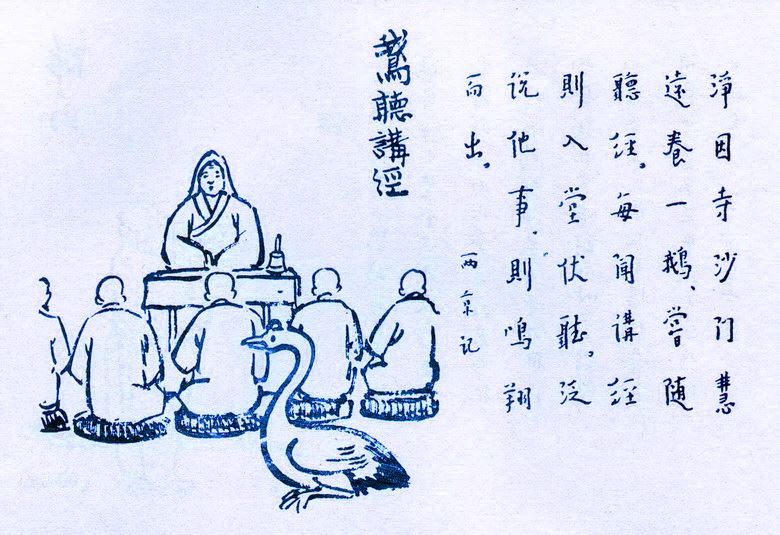 鵞聽講經
淨因寺沙门慧
遠養一鵝、嘗随
聽經。每聞講經
則入堂伏聽。泛
说他事、則鳴翔
而出。 兩京记